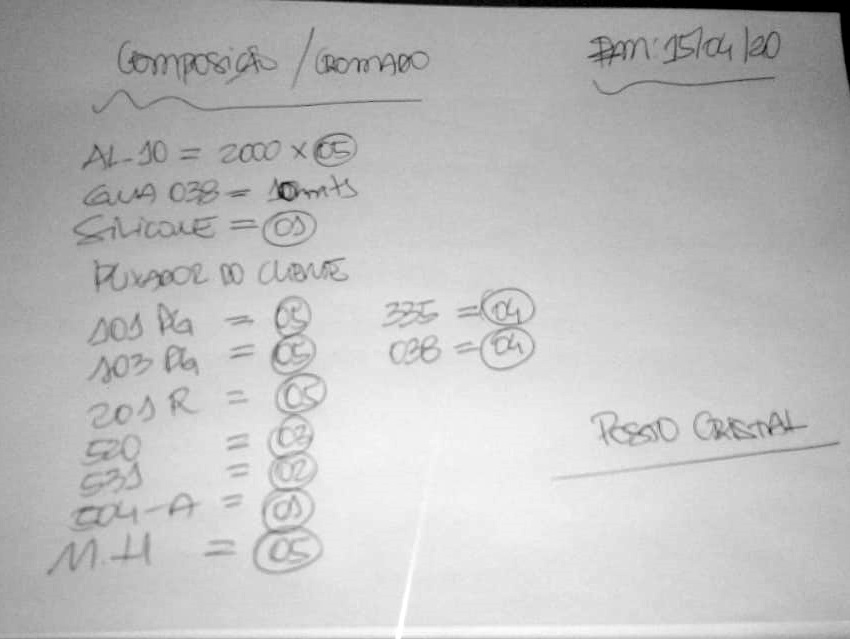 Composição / CROMADO
15/04/20
AL-10 = 2000 x 05
GUIA 038 = 10mts
SILICONE = 01
PUXADOR DO CLIENTE
101 PG = 05
335 = 04
103 PG = 05
038 = 04
201 R = 05
520 =
531 = 02
504-A = 01
M.H = 05
CRISTAL